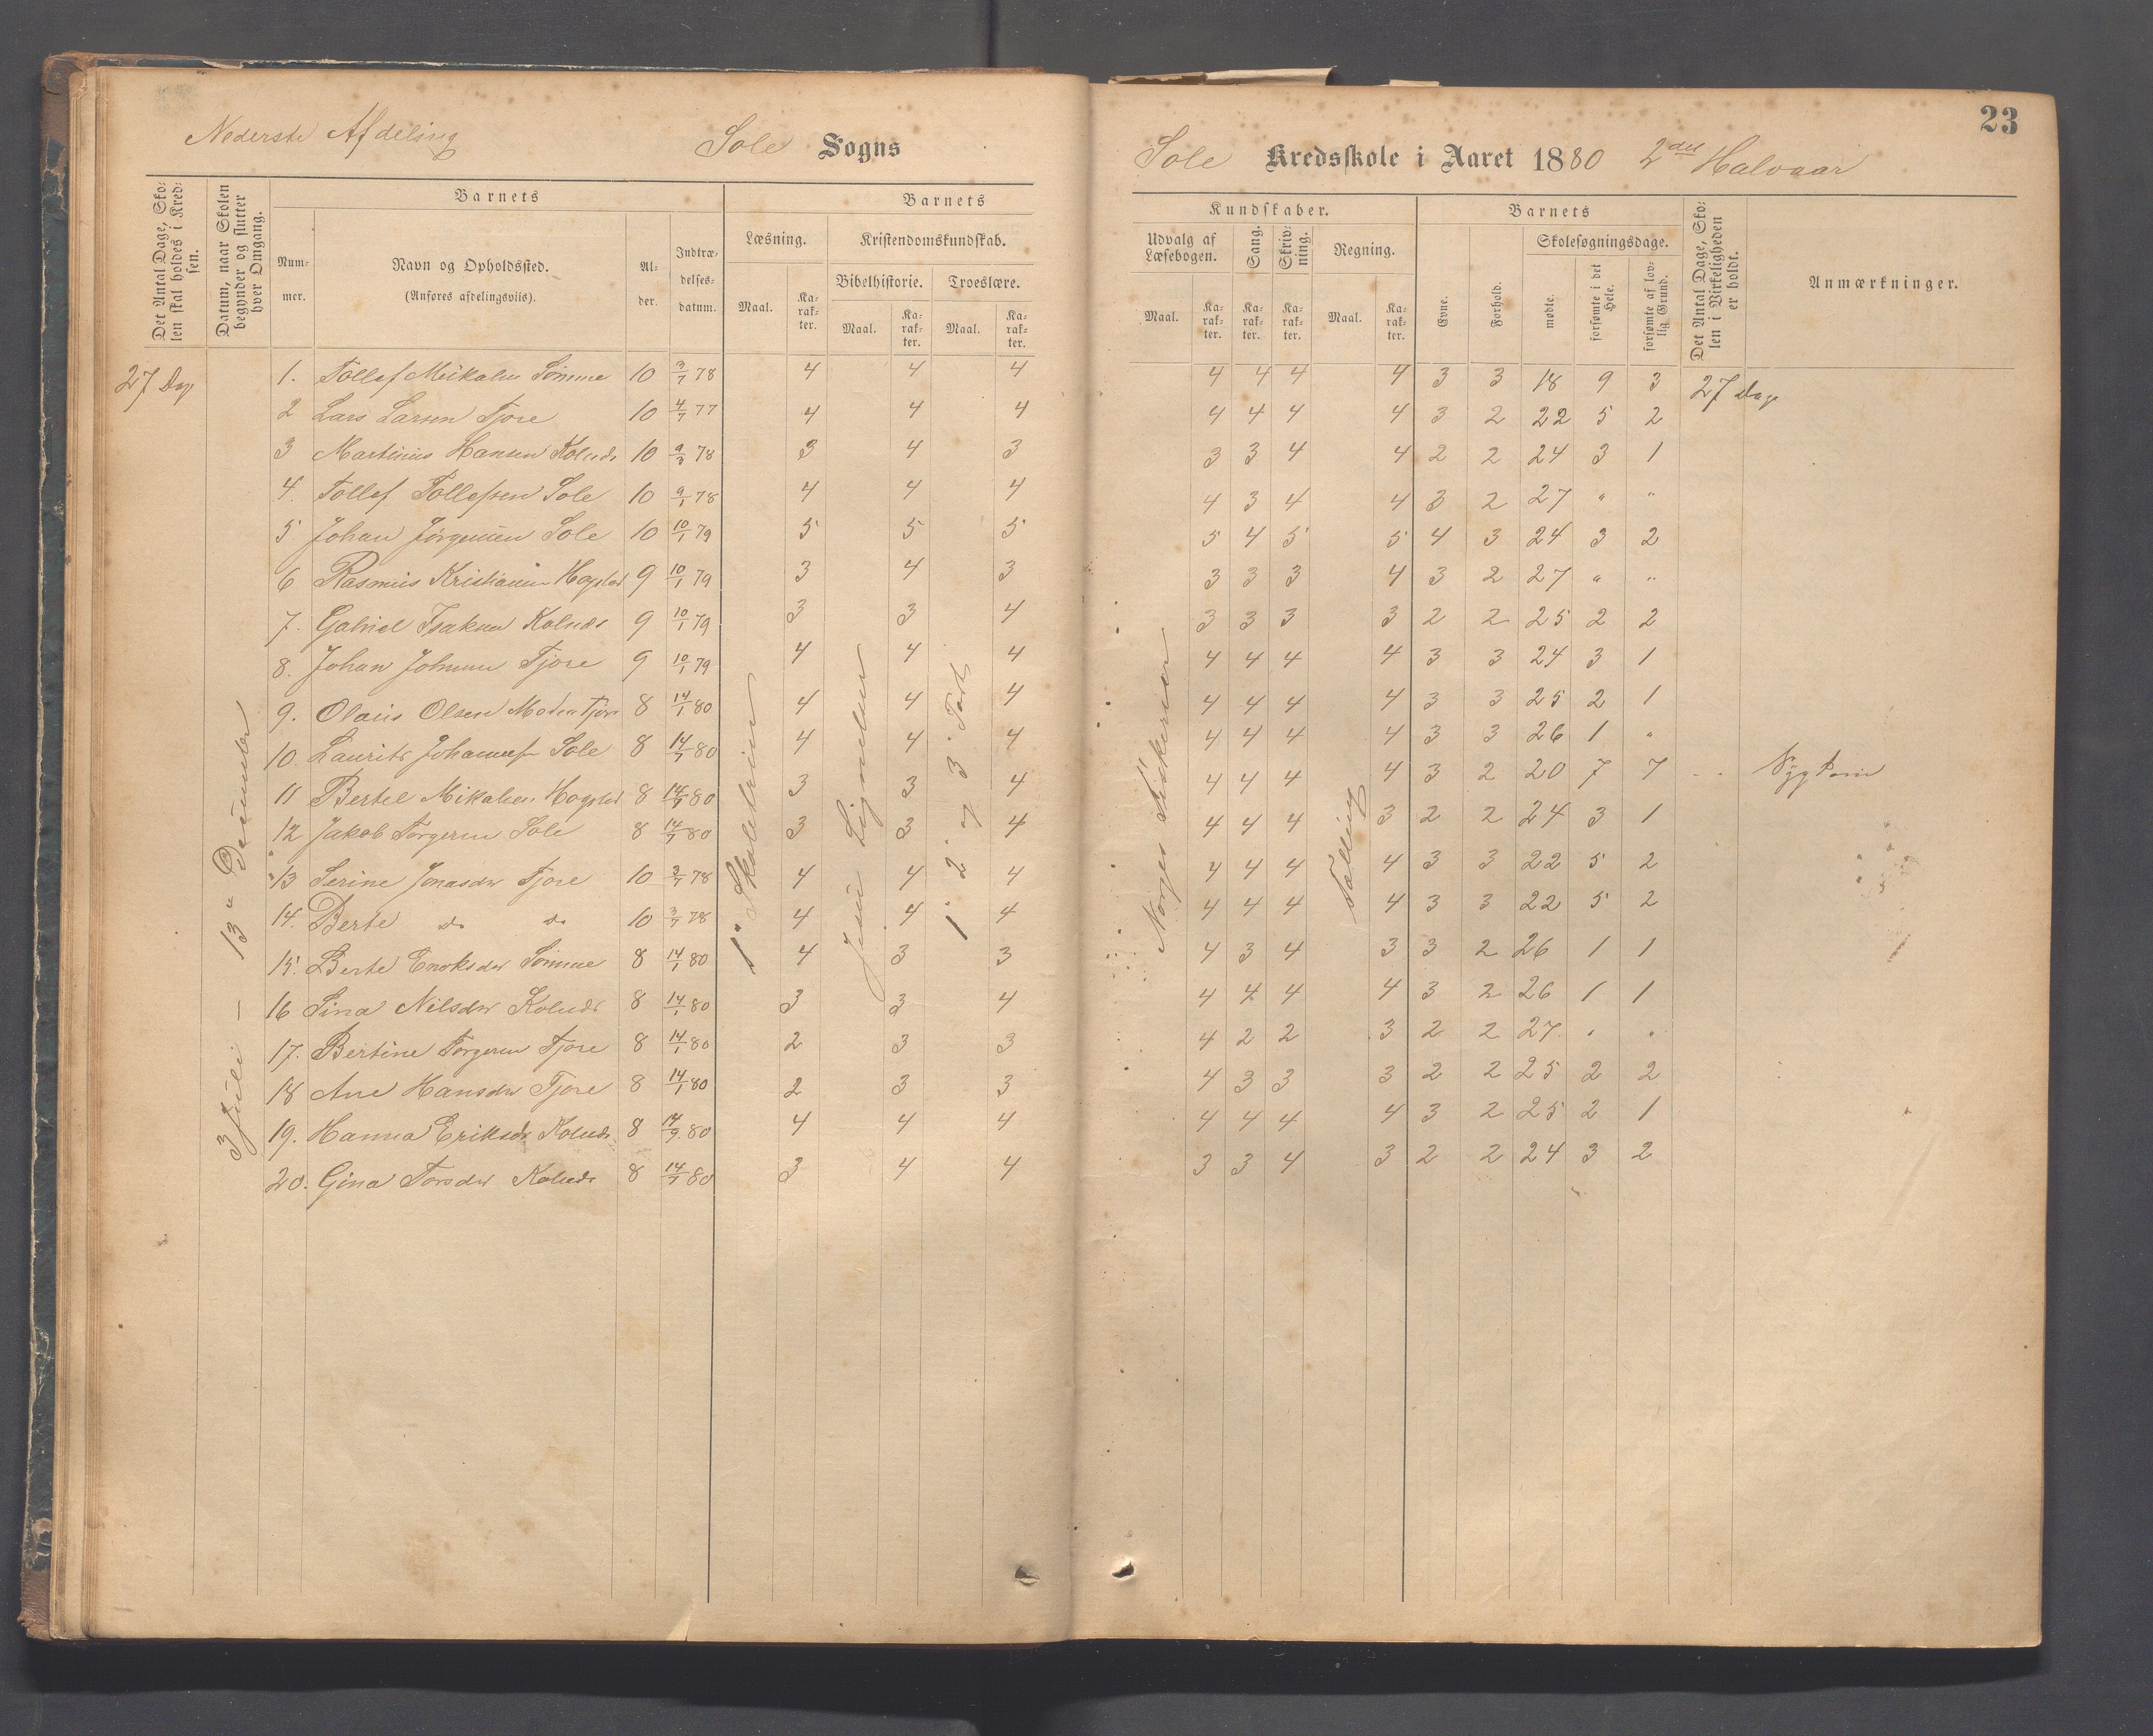 23
Nederste Afdeling
Sole Sogns
Sole Kredsskole i Aaret 1880 2det Halvaar
Det Antal Dage, Skolen skal holdes i Kredsen.
Datum, naar Skolen begynder og slutter hver Omgang.
Barnets
Nummer.
Navn og Opholdssted.
(Anføres afdelingsviis).
Alder.
Indtrædelsesdatum.
Barnets
Læsning.
Maal.
Karakter.
Kristendomskundskab.
Bibelhistorie.
Maal.
Karakter.
Troeslære.
Maal.
Karakter.
Kundskaber.
Udvalg af Læsebogen.
Maal.
Karakter.
Sang.
Karakter.
Skrivning.
Karakter.
Regning.
Maal.
Karakter.
Barnets
Evne.
Forhold.
Skolesøgningsdage.
mødte.
forsømte i det Hele.
forsømte af lovlig Grund.
Det Antal Dage, Skolen i Virkeligheden er holdt.
Anmærkninger.
27 Dage
3 Juli – 13 December
1. Tollef Mikalsen Sømme 10 3/7 78 4 4 4 4 4 4 4 3 3 18 9 3 27 Dage
2 Lars Larsen Tjore 10 4/7 77 4 4 4 4 4 4 4 3 2 22 5 2
3 Martinius Hansen Kolnæs 10 9/3 78 3 4 3 3 3 4 4 2 2 24 3 1
4. Tollef Tollefsen Sole 10 9/1 78 4 4 4 4 3 4 4 3 2 27 " "
5 Johan Jørgensen Sole 10 10/1 79 5 5 5 5 4 5 5 4 3 24 3 2
6 Rasmus Kristiansen Hogstad 9 10/1 79 3 4 3 3 3 3 4 3 2 27 " "
7. Gabriel Isaksen Kolnæs 9 10/1 79 3 3 4 3 3 3 3 2 2 25 2 2
8. Johan Johnsen Tjore 9 10/1 79 4 4 4 4 4 4 4 3 3 24 3 1
9. Olaus Olsen Tjore 8 14/1 80 4 4 4 4 4 4 4 3 3 25 2 1
10. Laurits Johannesen Sole 8 14/7 80 4 4 4 4 4 4 4 3 3 26 1 "
11 Bertel Mikalsen Hogstad 8 14/7 80 3 3 4 4 4 4 4 3 2 20 7 7 Sygdom
12 Jakob Torgersen Sole 8 14/7 80 3 3 4 4 4 4 3 2 2 24 3 1
13 Serine Jonasdtr Tjore 10 3/7 78 4 4 4 4 4 4 4 3 3 22 5 2
14. Berte do do 10 3/7 78 4 4 4 4 4 4 4 3 3 22 5 2
15. Berte Enoksdtr Sømme 8 14/1 80 4 3 3 4 3 4 3 3 2 26 1 1
16 Sina Nilsdtr Kolnæs 8 14/1 80 3 3 4 4 4 4 4 3 2 26 1 1
17. Bertine Torgersen Tjore 8 14/1 80 2 3 3 4 2 2 3 2 2 27 " "
18 Ane Hansdtr Tjore 8 14/1 80 2 3 3 4 3 3 3 2 2 25 2 2
19. Hanna Eriksdtr Kolnæs 8 14/9 80 4 4 4 4 4 4 4 3 2 25 2 1
20. Gina Torsdtr Kolnæs 8 14/7 80 3 4 4 3 3 4 3 2 2 24 3 2
1' Skoletrin
Jesu Lignelser
1' 2' og 3' Part
Norges Fiskerier
Tælling